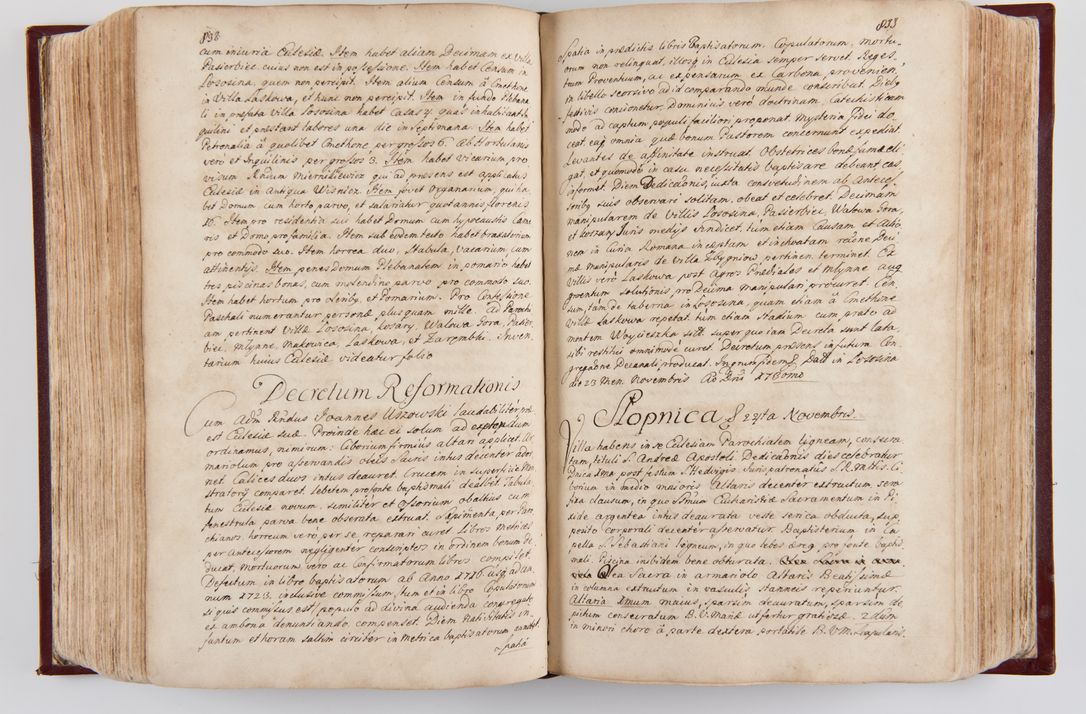 832
cum iniuria Ecclesiæ. Item habet aliam Decimam ex villa
Pasierbice cuius non est in possessione. Item habet Censum in
Lososina, quem non percipit. Item alium Censum â Cmethone
in Villa Laskowa, et hunc non percipit. Item in fundo Plebana
li in præfata Villa Lososina habet Casas 4. quas inhabitant In
quilini et præstant labores una die in septimana. Item habet
Petronalia â quolibet Cmethone per grossos 6. ab Hortulanis
verò et Inquilinis per grossos 3. Item habet Vicarium pro
visum Rndum Miernikiewicz qui ad præsens est applicatus
Ecclesiæ in Antiqua Wisnicz. Item fovet Organarium, qui ha
bet Domum cum horto parvo, et salariatur quotannis florenis
16. Item pro residentia sui habet Domum cum hypocaustis Came
ris et Domo pro familia. Item sub eodem tecto habet braxatorium
pro commodo suo. Item horrea duo, Stabula, Vacarium, cum
attinentijs. Item penes Domum Plebanalem in pomario habet
tres piscinas bonas, cum molendino parvo pro commodo suo.
Item habet hortum pro Leniby, et Pomarium. Pro Confessione
Paschali numerantur personæ, plus quam mille. Ad Parochi
am pertinent Villæ Lososina, Kosary, Walowa Gora, Pasier
bici, Mlynne, Makovica, Laskowa, et Zarembki. Inven
tarium huius Ecclesiæ videatur folio
Decretum Reformationis
Cum Adm Rndus Joannes Uszowski laudabiliter præ
est Ecclesiæ suæ. Proinde hæc ei solum ad explendum
ordinamus, nimirum: Ciborium firmius altari applicet. Ar
mariolum pro asservandis oleis Sacris intus decenter ador
net. Calices duos intus deauret. Crucem in superficie Mon
stratorij comparet. Lebetem pro fonte baptismali dealbet. Tabula
tum Ecclesiæ novum, similiter et Ossorium obaltius cum
fenestrula parva bene obserata extruat. Sapimenta per Paro
chianos horreum vero per se, reparari curet. Libros Metrices
per Antecessorem negligenter conscriptos in ordinem bonum de
ducat, Mortuorum verò ac Confirmatorum libros compilet.
Defectum in libro baptisatorum ab Anno 1716. usq ad an
num 1723. inclusive commissum, tum et in libro Copulatorum
si quis commissus est, populo ad divina audienda congregato
ex ambona denuntiando compenset. Diem Nativitatis in
fantum et horam saltim circiter in Metrica baptisatorum annotet.
spatia
833
Spatia in prædictis libris Baptisatorum, Copulatorum, mortu
orum non relinquat, illosq in Ecclesia semper servet. Reges
trum Proventuum, ac expensarum ex Carbona provenien.
in libello seorsivo ad id comparando munde conscribat. Dieb
festivis concionetur, Dominicis verò doctrinam Catechisticam
modo ad captum populi faciliori proponat. Mysteria fidei do
ceat, eaq omnia quæ bonum Pastorem concernunt expediat.
Levantes de affinitate instruat. Obstetrices bonæ famæ eli
gat, et quomodo in casu necessitatis baptisare debeant eas
informet. Diem Dedicaõnis, iuxta consvetudinem ab Anteces
soriby suis observari solitam, obeat et celebret. Decimam
manipularem de Villis Lososina, Pasierbici, Walowa Gora,
et Korzary Juris medijs vindicet, tum etiam Causam et Actio
nem in Curia Romana inceptam et inchoatam rãone Deci
mæ manipularis de Villa Zbygniow pertinen. terminet. Ex
Villis verò Laskowa post agros Prædiales et Mlynne aug
mentum solutionis pro Decima manipulari procuret. Cen
sum, tam de taberna in Lososina, quam etiam â Cmethone
Villæ Laskowa repetat. tum etiam Stadium cum prato ad
montem Woycieszka sitt. super quo iam Decreta sunt lata,
sibi restitui omnimodè curet. Decretum præsens in futura Con
gregaõne Decanali producat. In quorum fidem Datt in Lososina
die 23. Men. Novembris Ao Dni 1730mo
Slopnica 24ta Novembris.
Villa habens in se Ecclesiam Parochialem ligneam, consecra
tam, tituli S. Andreæ Apostoli. Dedicaõnis dies celebratur
Dnica Xma post festum S. Hedvigis. Juris patronatus S. R. Mttis. Ci
borium in medio maioris Altaris decenter extructum, sera
fixa clausum, in quo SSmum Eucharistiæ Sacramentum in Pi
xide argentea intus deaurata veste serica obducta, sup
posito corporali decenter asservatur. Baptisterium in Ca
pella S. Sebastiani ligneum, in quo lebes æreg pro fonte baptis
mali. Piscina inibidem bene obturata.
Olea Sacra in armariolo Altaris Beatissimæ
in columna extructum in vasculis stanneis reperiuntur.
Altaria Xmum maius, sparsim deauratum, sparsim de
pictum consecratum B. V. Mariæ ut fertur gratiosæ. 2dum
in minori choro â parte dextera portatile B. V. M. Scapularis.